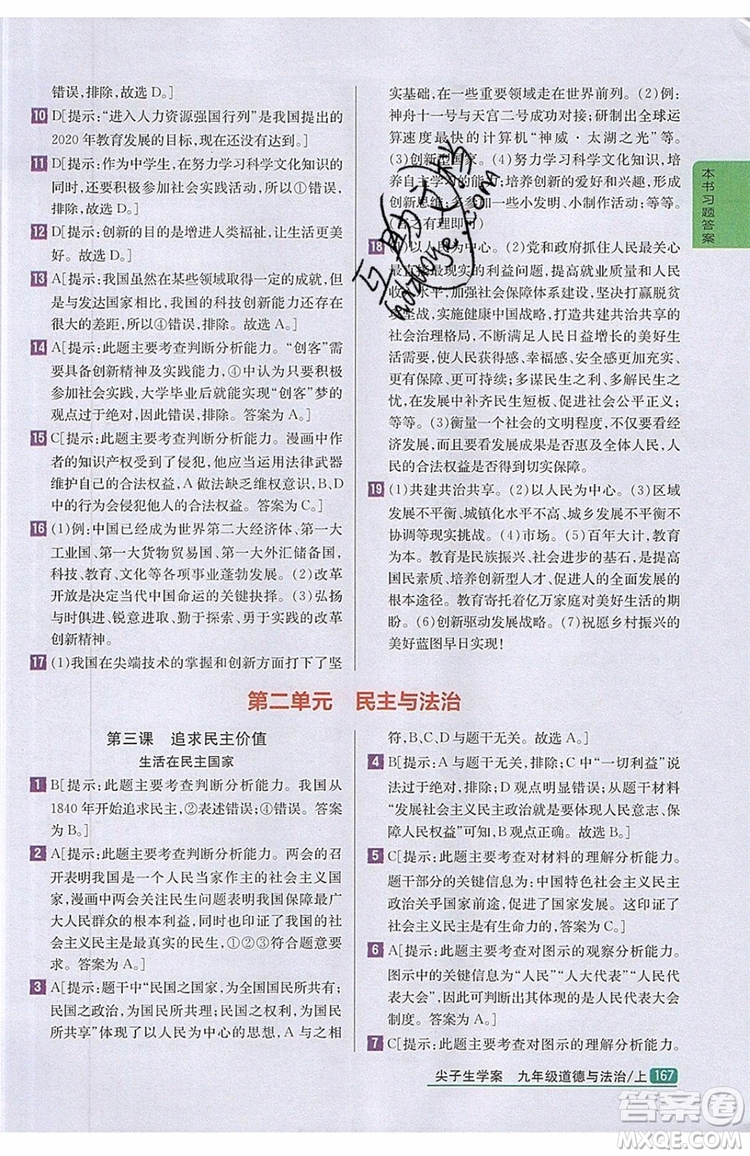 错误,排除,故选 D。]
10 D[提示:“进入人力资源强国行列”是我国提出的
2020 年教育发展的目标,现在没有实现。]
11 D[提示:作为中学生,在努力学习科学文化知识的
同时,还要积极参加社会实践活动,所以①错误,
排除,故选 D。]
12 D[提示:创新的目的是增进人类福祉,让生活更
美好。]
13 A[提示:我国虽然在某些领域取得一定的成就,但
是与发达国家相比,我国的科技创新能力还存在
很大的差距,所以④错误,排除,故选 A。]
14 A[提示:此题主要考查判断分析能力。“创客”需
要具备创新精神及实践能力。④中认为只要具备
创新精神及实践能力,大学毕业后就能实现“创客”梦的
观点过于绝对,因此错误,排除。答案为 A。]
15 C[提示:此题主要考查判断分析能力。漫画中作
者的知识产权受到了侵犯,他应该运用法律武器
维护自己的合法权益,A 做法缺乏维权意识,B、D
行为侵犯了他人的合法权益。答案为 C。]
16 (1)例:中国已经成为世界第二大经济体、第一大
工业国、第一大货物贸易国、第一大外汇储备国,
科技、教育、文化等各项事业蓬勃发展。(2)改革
开放是决定当代中国命运的关键抉择。(3)弘扬
与时俱进、锐意进取、勤于探索、勇于实践的改革
创新精神。
17 (1)我国在尖端技术的掌握和创新方面打下了坚
实基础,在一些重要领域走在世界前列。(2)例:
神舟十一号与天宫二号成功对接;研制出全球运
算速度最快的计算机“神威·太湖之光”;等等。
(3)创新型国家。(4)努力学习科学文化知识,培
养创新精神;培养创新的爱好和兴趣,敢于打
创新思维;多参加一些小发明、小制作活动;等等。
(言之有理即可)
18 (1)以人民为中心。(2)党和政府抓住人民最关
最现实的利益问题,提高就业质量和人民
收入水平,加强社会保障体系建设,坚决打赢脱贫
攻坚战,实施健康中国战略,打造共建共治共享的
社会治理格局,不断满足人民日益增长的美好生
活需要,使人民获得感、幸福感、安全感更加充实、
更有保障、更可持续;多谋民生之利、多解民生之忧,
在发展中补齐民生短板、促进社会公平正义;
等等。(3)衡量一个社会的文明程度,不仅要看经
济发展,而且要看发展成果是否惠及全体人民,人民
的合法权益是否得到切实保障。
19 (1)共建共治共享。(2)以人民为中心。(3)区域
发展不平衡、城镇化水平不高、城乡发展不平衡不
协调等现实挑战。(4)市场。(5)百年大计、教育
为本。教育是民族振兴、社会进步的基石,是提高
国民素质、培养创新型人才、促进人的全面发展的
根本途径。教育寄托着亿万家庭对美好生活的期
盼。(6)绿水青山就是金山银山。(7)祝愿乡村振兴的
美好蓝图早日实现!
本书习题答案
第二单元 民主与法治
第三课 追求民主价值
生活在民主国家
1 B[提示:此题主要考查判断分析能力。我国从
1840 年开始追求民主,②表述错误;④错误。答案
为 B。]
2 A[提示:此题主要考查判断分析能力。两会的召
开表明我国是一个人民当家作主的社会主义国
家,漫画中两会聚焦的民生问题表明我国保障最广
大人民群众的根本利益,同时也印证了我国的社
会主义民主是最真实的民主,①②④符合题意要
求。答案为 A。]
3 A[提示:题干中“民国之国家,为全国国民所共有;
民国之政治,为国民所共理;民国之权利,为国民
所共享”体现了以人民为中心的思想,A 与之相
符,B、C、D 与题干无关。故选 A。]
4 B[提示:A、C 与题干无关,排除;B 中“一切利益”说
法过于绝对,排除;D 观点明显错误,排除;由材料
“发展社会主义民主政治就是要体现人民意志、保
障人民权益”可知,B 观点正确。答案为 B。]
5 C[提示:此题主要考查对材料的理解分析能力。
题干部分的关键信息是“总书记强调”“民主
政治关乎国家前途命运”,这印证了我国的社会主
义民主是有生命力的。答案为 C。]
6 A[提示:此题主要考查对图示的观察分析能力。
图示中的关键信息为“人民”“人大代表”“人民代
表大会”,据此可推断出其体现的是人民代表大会
制度。答案为 A。]
7 C[提示:此题主要考查对图示的理解分析能力。
尖子生学案 九年级道德与法治/上 167
互助文档
hdzuoye.com
答案圈
MXQE.COM